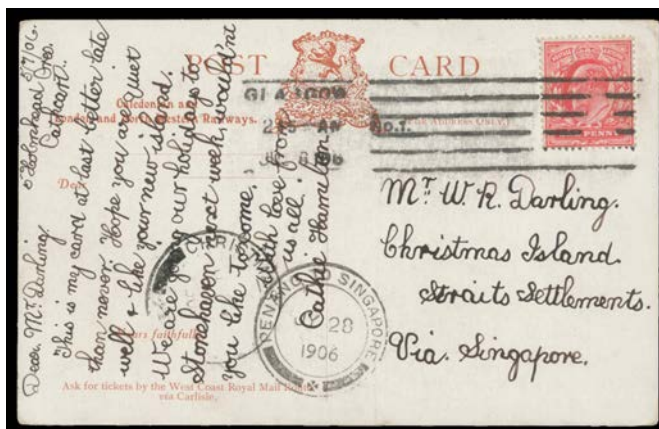 POST CARD
Caledonian and
London and North Western Railways.
(THE ADDRESS ONLY.)
GLASGOW
2 15 AM No.1.
Dear
Yours faithfully
Ask for tickets by the West Coast Royal Mail Route
via Carlisle.
8/7/06.
Holmhead Cres.
Cathcart.
Dear Mr Darling.
This is my card at last better late
than never. Hope you are quiet
well & like your new island.
We are going our holidays to
Stonehaven next week, would'nt
you like to come.
With love from
us all.
Cathie Hamilton
Mr. W. R. Darling.
Christmas Island.
Straits Settlements.
Via. Singapore.
PENANG TO SINGAPORE
28
1906
PENNY